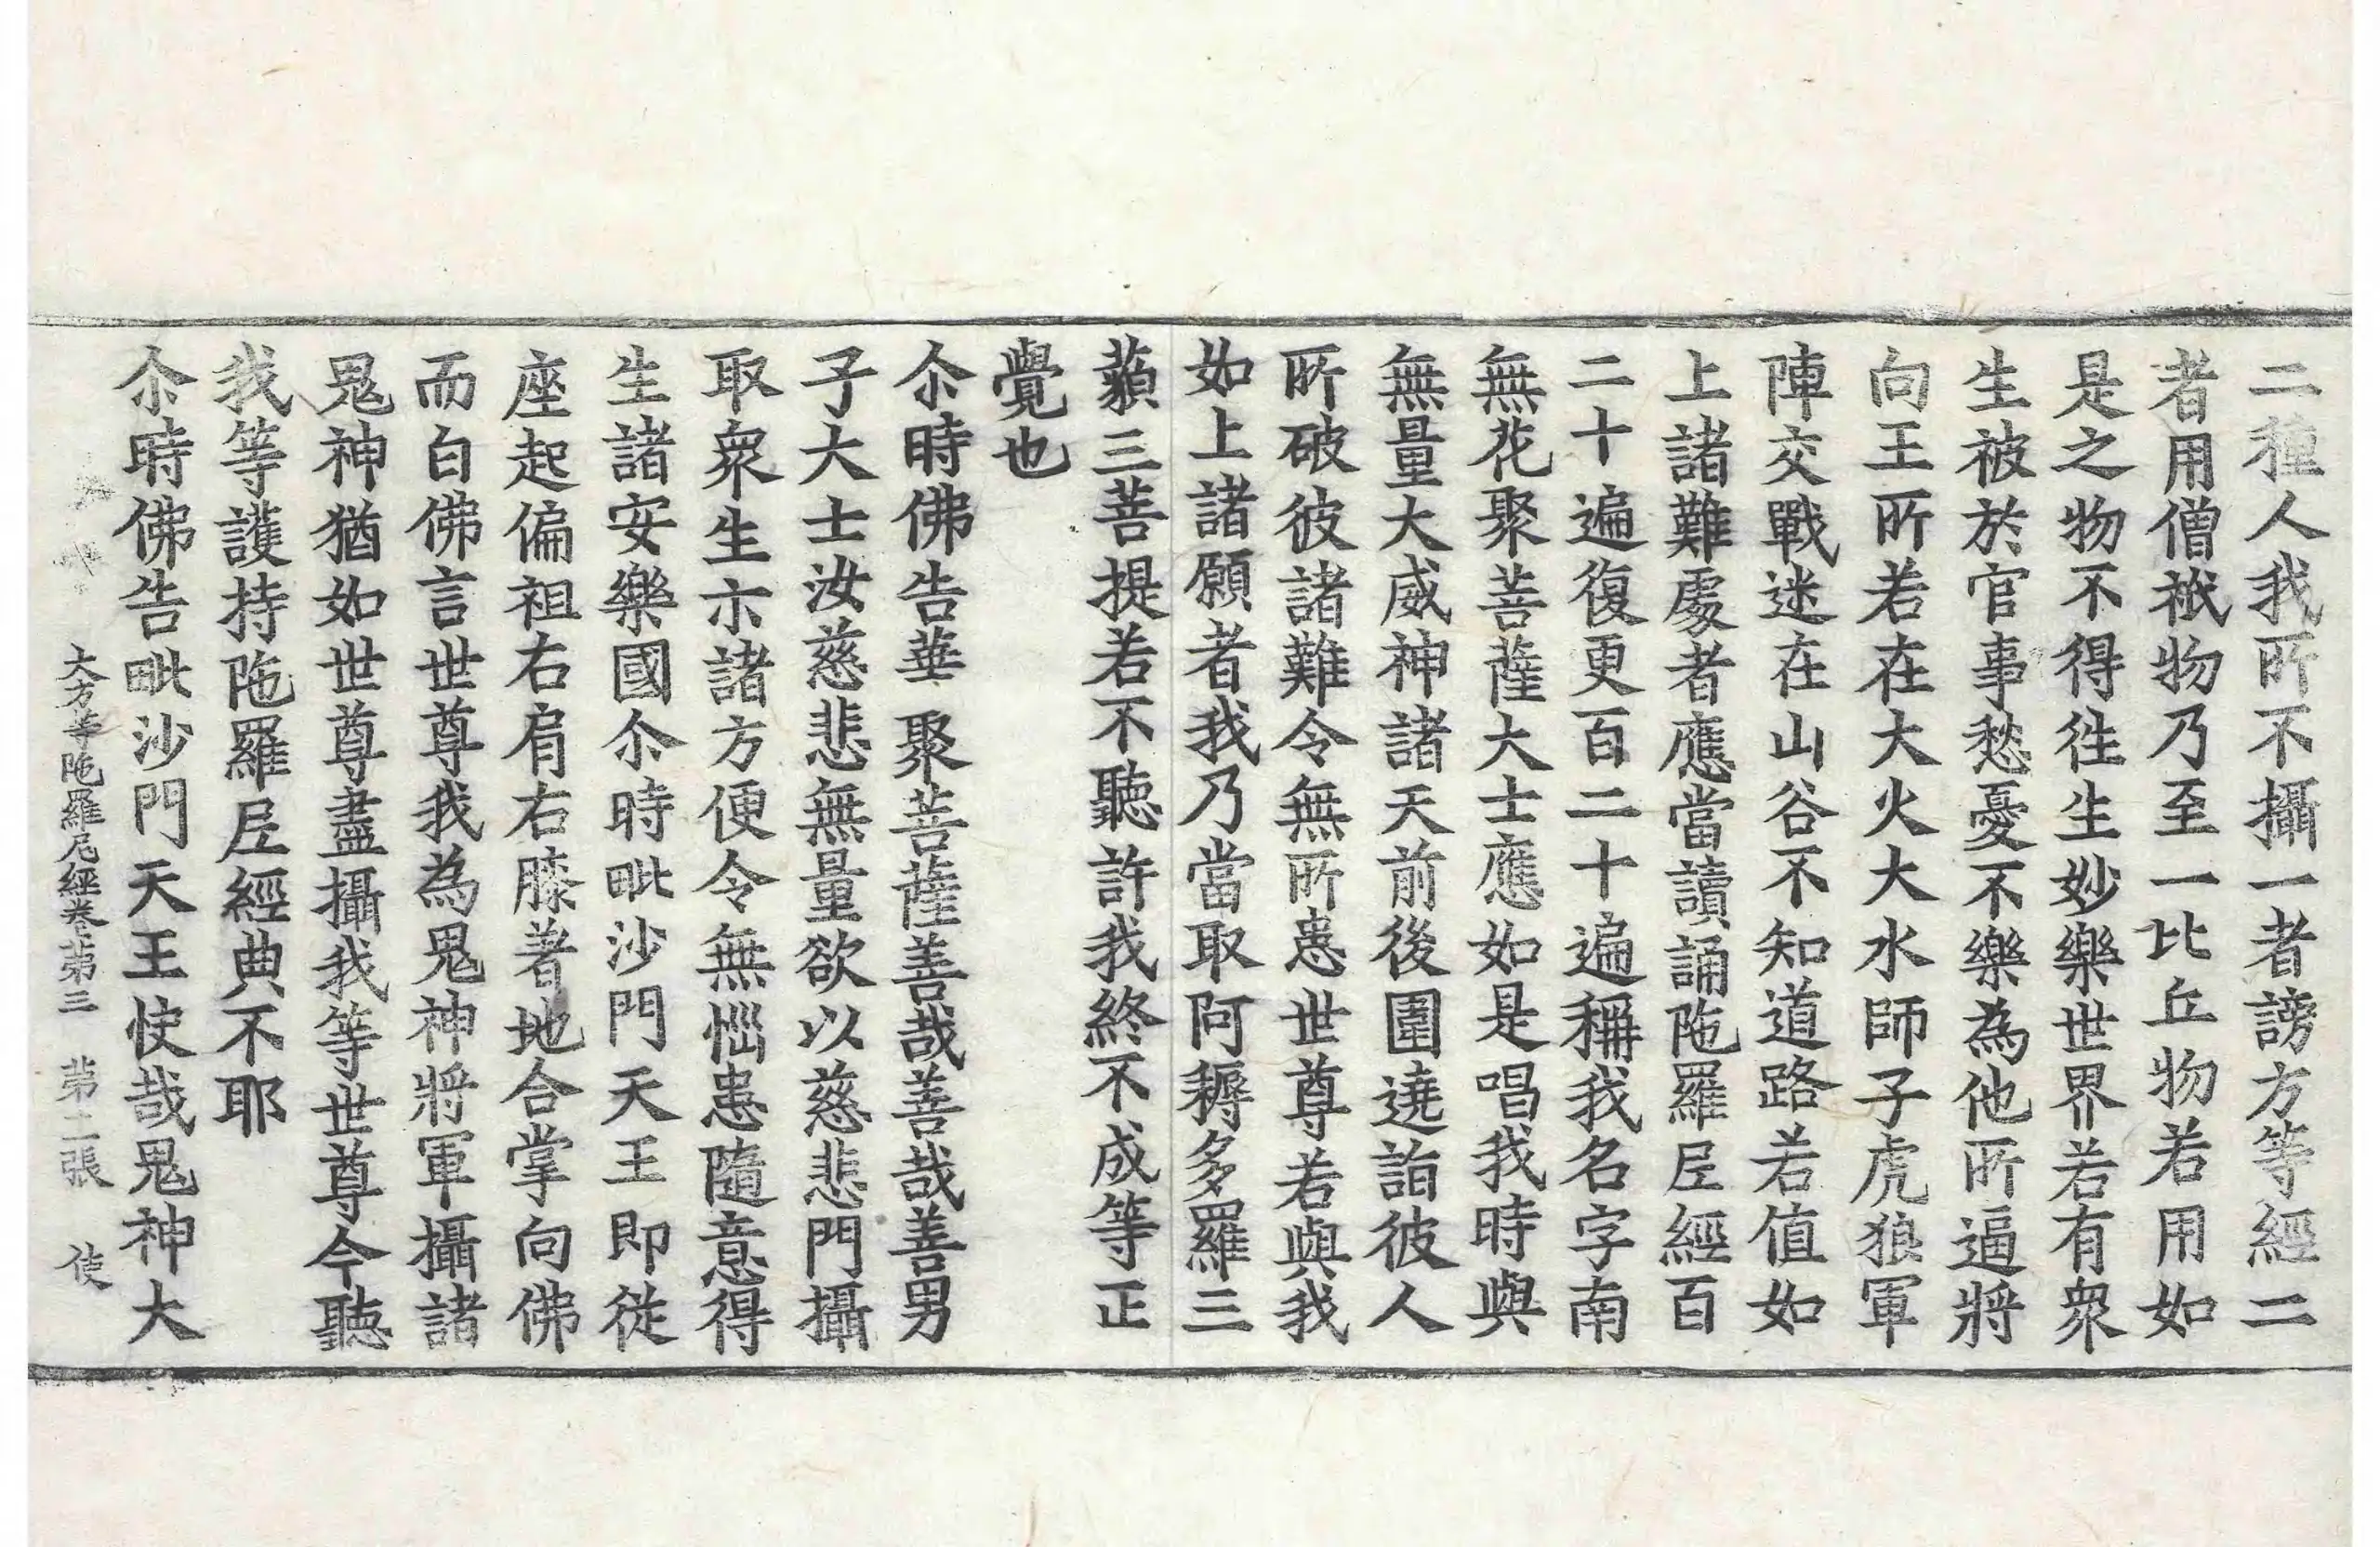 二種人我所不攝一者謗方等經二
者用僧祇物乃至一比丘物若用如
是之物不得往生妙樂世界若有衆
生被於官事愁憂不樂為他所逼將
向王所若在大火大水師子虎狼軍
陣交戰迷在山谷不知道路若值如
上諸難處者應當讀誦陁羅尼經百
二十遍復更百二十遍稱我名字南
無花聚菩薩大士應如是唱我時與
無量大威神諸天前後圍遶詣彼人
所破彼諸難令無所患世尊若與我
如上諸願者我乃當取阿耨多羅三
藐三菩提若不聽許我終不成等正
覺也
尒時佛告華聚菩薩善哉善哉善男
子大士汝慈悲無量欲以慈悲門攝
取衆生尒諸方便令無惱患隨意得
生諸安樂國尒時毗沙門天王即從
座起偏袒右肩右膝著地合掌向佛
而白佛言世尊我為鬼神將軍攝諸
鬼神猶如世尊盡攝我等世尊今聽
我等護持陁羅尼經典不耶
尒時佛告毗沙門天王快哉鬼神大
大方等陁羅尼經卷第三 第二張 使